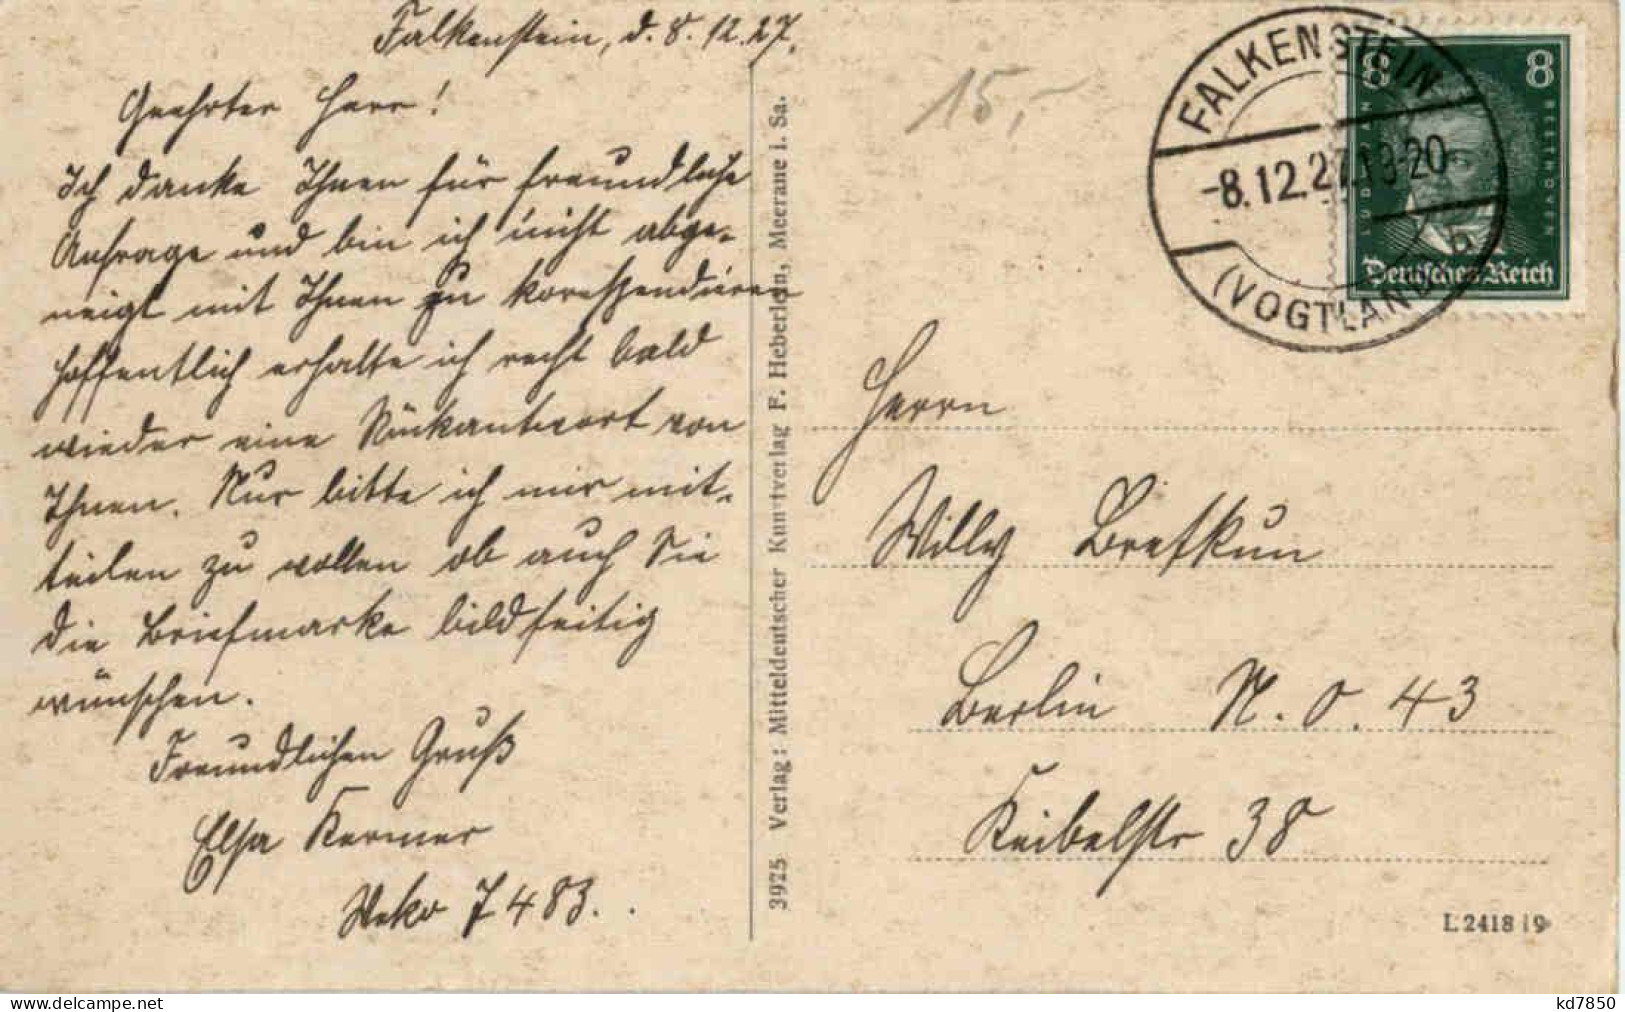 Falkenstein, d. 8. 12. 27.
Geehrter Herr!
Ich danke Ihnen für freundliche
Anfrage und bin ich nicht abge-
neigt mit Ihnen zu korespondieren
hoffentlich erhalte ich recht bald
wieder eine Rückantwort von
Ihnen. Nur bitte ich mir mit-
teilen zu wollen ob auch Sie
die Briefmarke bildseitig
wünschen.
Freundlichen Gruß
Elsa Kermer
Weko 7483.
3925 Verlag: Mitteldeutscher Kunstverlag F. Heberlein, Meerane i. Sa.
15,-
FALKENSTEIN
-8.12.27.19-20
b
(VOGTLAND)
8 8
LUDWIG VAN BEETHOVEN
Deutsches Reich
Herrn
Willy
Berlin N. O. 43
Keibelstr 38
L 2418 i 9
kd7850
https://www.delcampe.net